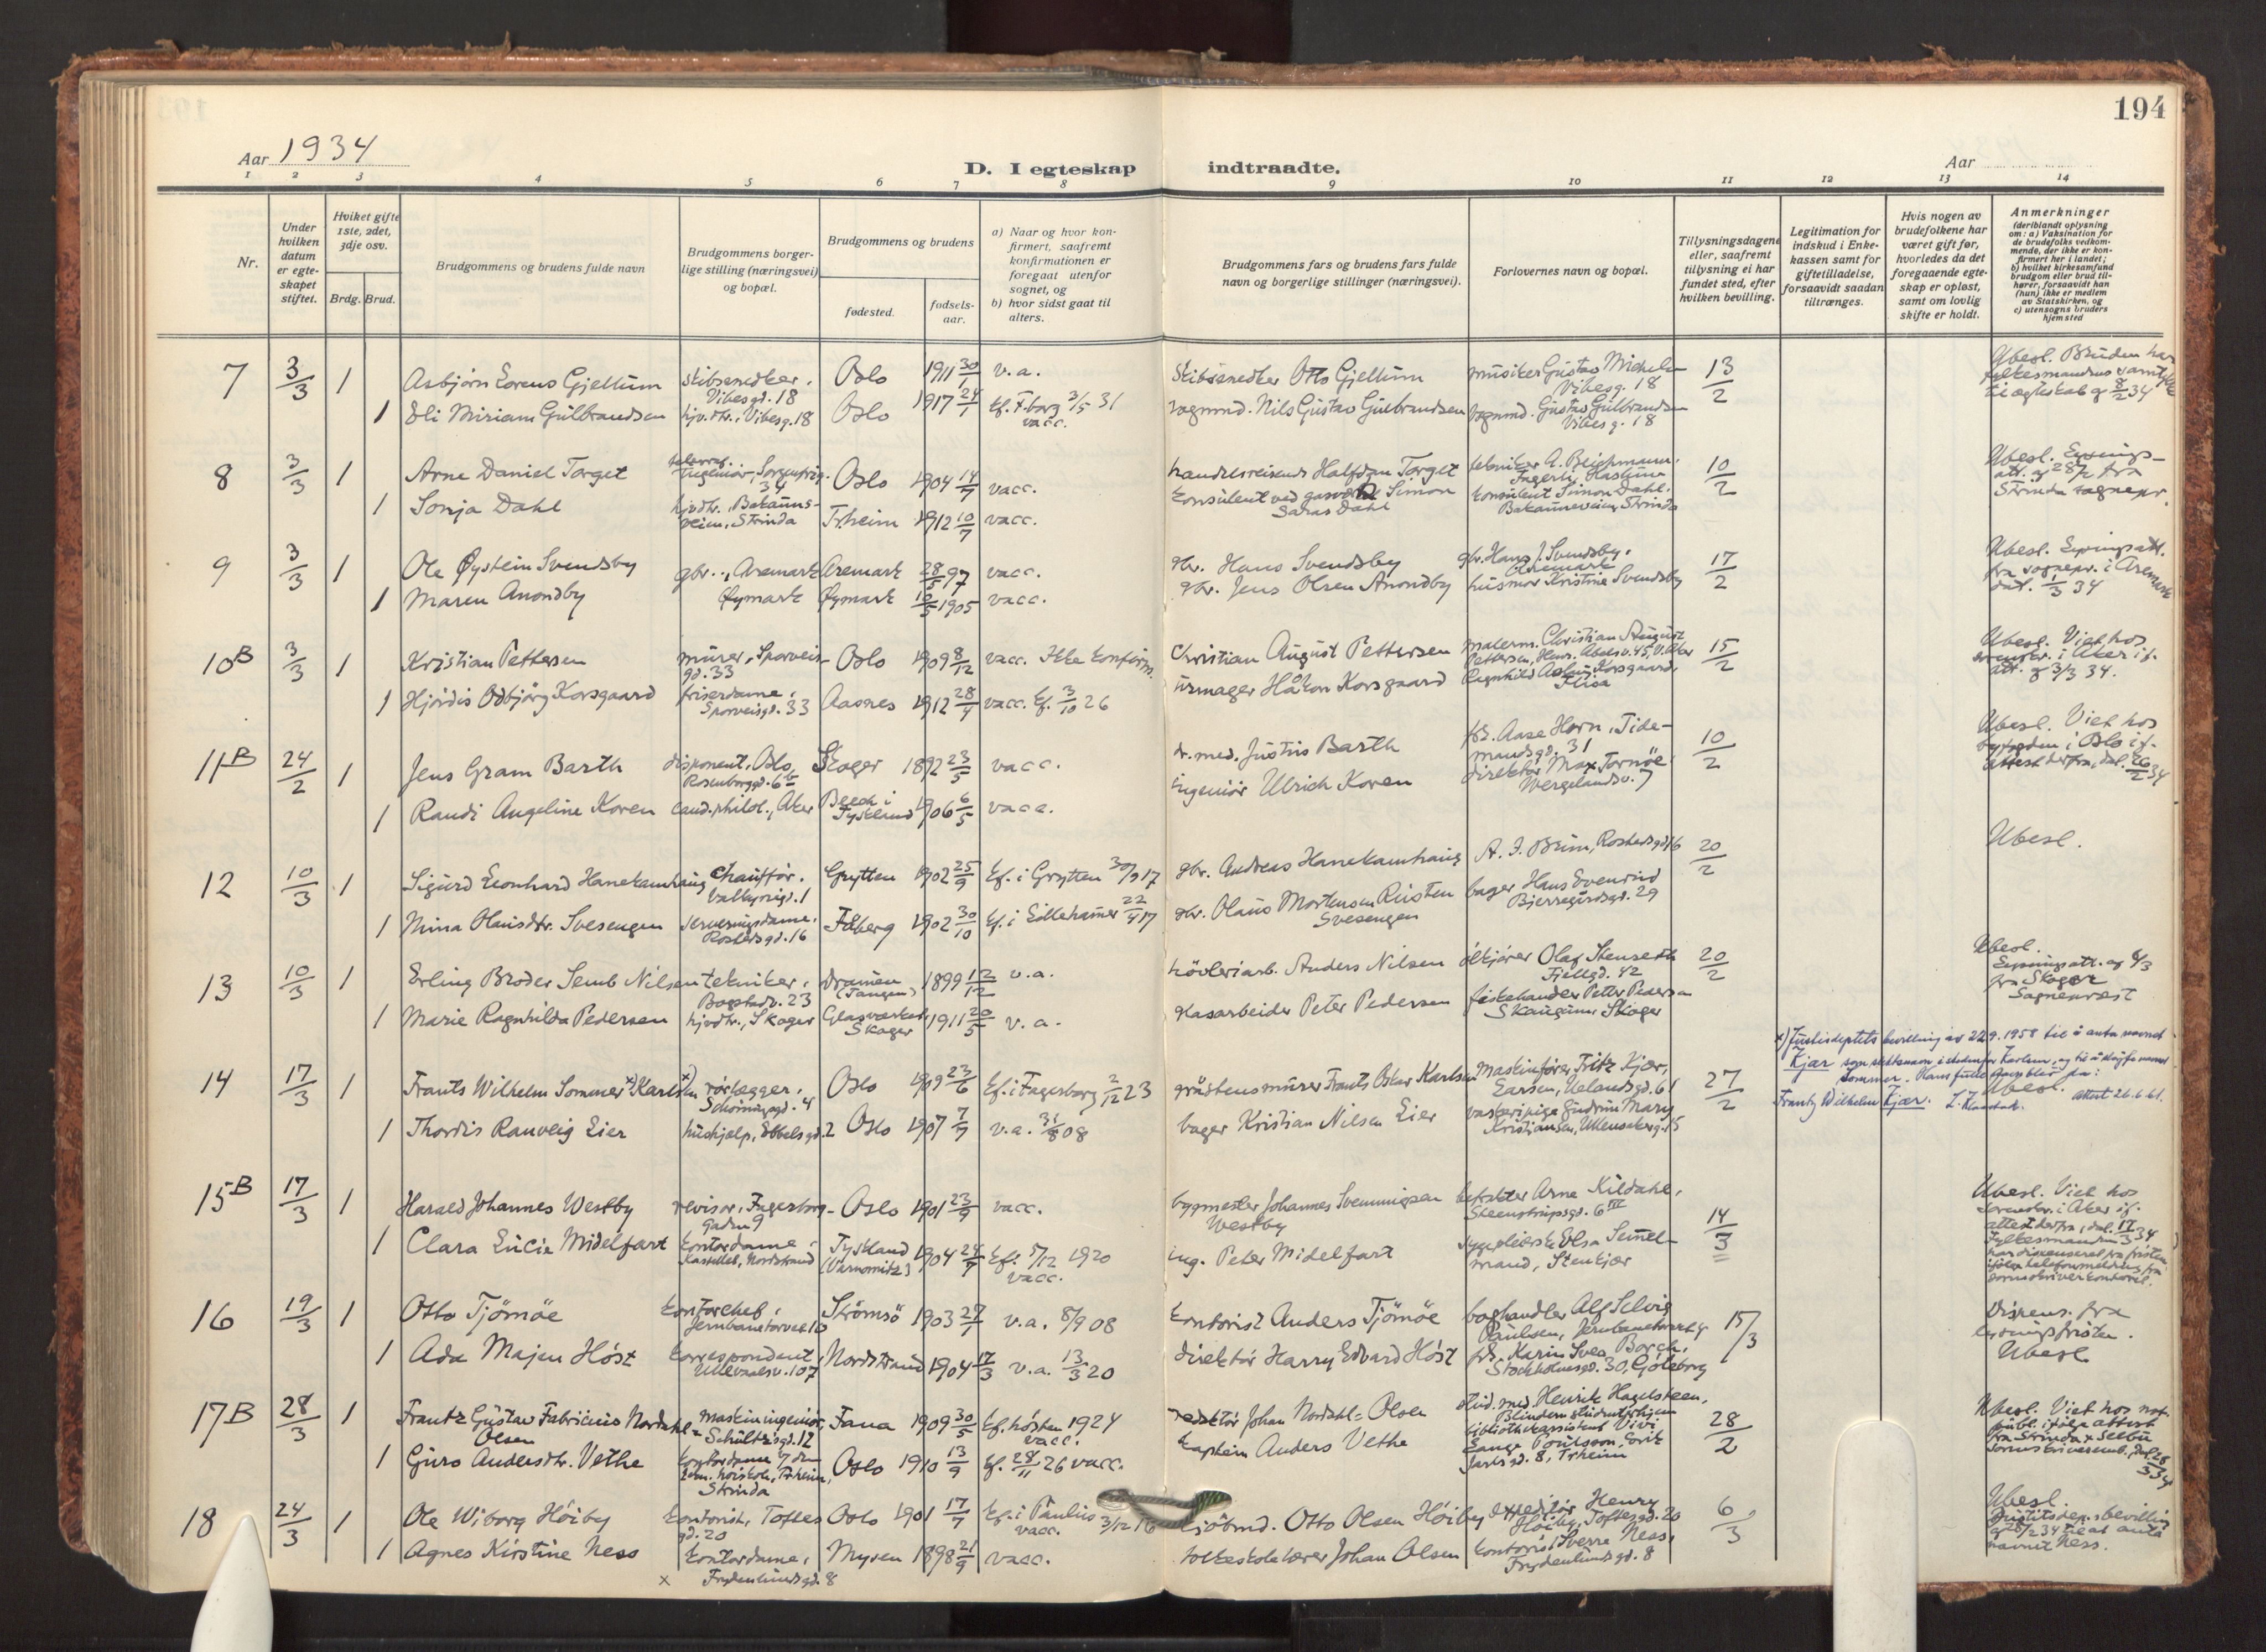 194
Aar 1934
D. I egteskap indtraadte.
Aar
1 2 3 4 5 6 7 8 9 10 11 12 13 14
Nr.
Under hvilken datum er egteskapet stiftet.
Hviket gifte 1ste, 2det, 3dje osv.
Brdg. Brud.
Brudgommens og brudens fulde navn
Brudgommens borgerlige stilling (næringsvei) og bopæl.
Brudgommens og brudens
fødested.
fødselsaar.
a) Naar og hvor konfirmert, saafremt konfirmationen er foregaat utenfor sognet, og
b) hvor sidst gaat til alters.
Brudgommens fars og brudens fars fulde navn og borgerlige stillinger (næringsvei).
Forlovernes navn og bopæl.
Tillysningsdagene eller, saafremt tillysning ei har fundet sted, efter hvilken bevilling.
Legitimation for indskud i Enkekassen samt for giftetilladelse, forsaavidt saadan tiltrænges.
Hvis nogen av brudefolkene har været gift før, hvorledes da det foregaaende egteskap er opløst, samt om lovlig skifte er holdt.
Anmerkninger (deriblandt oplysning om: a) Vaksination for de brudefolks vedkommende, der ikke er konfirmert her i landet; b) hvilket kirkesamfund brudgom eller brud tilhører, forsaavidt han (hun) ikke er medlem av Statskirken, og c) utensogns bruders hjemsted
7 3/3 1 Asbjörn Lorens Gjellum skibsnedker, Vibesgd. 18 Oslo 1911 30/1 v.a. Skibsnedker Otto Gjellum musiker Gustav Vibesg. 18 13/2 Ubesl. Bruden har
fylkesmandens samtykke til egteskab af 8/2 34
1 Eli Miriam Gulbrandsen hjv.dtr., Vibesg. 18 Oslo 1917 24/1 kf. F.borg 3/5 31 vacc. vognmd. Nils Gustav Gulbrandsen vognmd. Gustav Gulbrandsen Vibesg. 18
8 3/3 1 Arne Daniel Torget ingeniör, Sorgenfrig. 34 Oslo 1904 14/7 vacc. handelsreisende Halfdan Torget tekniker A. Beichmann, Fagerli, 10/2 Ubesl. Lysnings-
att. af 28/2 fra Strinda sognepr.
1 Sonja Dahl hjvdtr., Bakaunsveien, Strinda Trheim 1912 10/7 vacc. konsulent ved gasverk Simon Saras Dahl konsulent Simon Dahl, Bakauneveien, Strinda
9 3/3 1 Ole Øystein Svendsby gbr., Aremark Aremark 28/5 97 vacc. gbr. Hans Svendsby gbr. Hans J. Svendsby, Aremark 17/2 Ubesl. Lysningsatt.
fra sognepr. i Aremark dat. 1/3 34
1 Maren Anondby Øymark Øymark 12/5 1905 vacc. gbr. Jens Olsen Anondby husmor Kristine Svendsby
10B 3/3 1 Kristian Pettersen murer, Sporveisgd. 33 Oslo 1909 8/12 vacc. Ikke konfirm. Christian August Pettersen malerm. Christian August Pettersen, Henr. Ibsens v. 45, V. Aker 15/2 Ubesl. Viet hos
sorenskr. i Aker if. att. af 3/3 34.
1 Hjördis Odbjörg Korsgaard friserdame, Sporveisgd. 33 Aasnes 1912 28/4 vacc. kf. 3/10 26 urmager Håkon Korsgaard Ragnhild Aslaug Korsgaard, Flisa
11B 24/2 1 Jens Gram Barth disponent, Oslo, Rosenborggd. 6 Skoger 1892 23/5 vacc. dr. med. Justus Barth frk. Aase Horn, Tidemandsgd. 31 10/2 Ubesl. Viet hos
byfogden i Oslo if. attest derfra, dat. 26/2 34
1 Randi Angeline Koren cand. philol., Aker Tyskland 1906 6/5 vacc. ingeniör Ulrich Koren direktör Max Tornöe, Wergelandsv. 7
12 10/3 1 Sigurd Leonhard Hanekamhaug Chaufför, Valkyriegd. 1 Grytten 1902 25/9 kf. i Grytten 30/9 17 gbr. Andreas Hanekamhaug A. J. Brun, Rostedsgd. 16 20/2 Ubesl.
1 Mina Olausdtr. Svesengen serveringsdame, Rostedsgd. 16 Fåberg 1902 30/10 kf. i Lillehamer 22/4 17 gbr. Olaus Mortensen Rusten Svesengen bager Hans Evenrud Bjerregårdsgd. 29
13 10/3 1 Erling Broder Semb Nilsen tekniker, Bogstadv. 23 Dramen (Tangen) 1899 12/12 v.a. hövleriarb. Anders Nilsen ölkjörer Olaf Stenseth Fjellgd. 42 20/2 Ubesl.
Lysningsatt. af 6/3 fra Skoger Sogneprest
1 Marie Ragnhilda Pedersen hjvdtr., Skoger Glasverket Skoger 1911 20/5 v.a. glasarbeider Peter Pedersen fiskehandler Petter Pedersen Skauganr Skoger
x) Justisdeptets bevilling av 22.9.1958 til å anta navnet
Kjær som slektsnavn i stedenfor Karlsen, og til å sløyfe navnet
Sommer. Hans fulde navn blir da:
Frantz Wilhelm Kjær. Attest 26.6.61.
14 17/3 1 Frants Wilhelm Sommer x) Karlsen rörlegger, Schöningsgd. 4 Oslo 1909 23/6 kf. i Fagerborg 2/12 23 gråstensmurer Frants Oskar Karlsen Maskinförer Fritz Kjær, Larsen, Uelandsgd. 61 27/2 Ubesl.
1 Thordis Ranveig Lier hushjelp, Ebbelsgd. 2 Oslo 1907 7/9 v.a. 31/8 08 bager Kristian Nilsen Lier vaskeripige Gudrun Mary Kristiansen, Ullensakergt. 15
15B 17/3 1 Harald Johannes Westby revisor, Fagerborggaden 9 Oslo 1901 23/9 vacc. bygmester Johannes Svenningsen Westby Arne Kildahl, Steenstrupsgd. 6 III 14/3 Ubesl. Viet hos
sorenskr. i Aker if. attest derfra, dat. 17/3 34
Fylkesmanden har dispenseret fra fristen ifölge telefonmelding fra sorenskriverkontoret.
1 Clara Lucie Midelfart kontordame, Kastellet, Nordstrand Tyskland (Varnowitz) 1904 24/7 kf. 5/12 1920 vacc. ing. Peter Midelfart sygepleierske Elsa Semelmand, Stenkjær
16 19/3 1 Otto Tjömöe kontorchef, Jernbanetorvet 10 Strömsö 1903 27/1 v.a. 8/9 08 kontorist Anders Tjömöe boghandler Alf Selvig Paulsen, Jernbanetorvet 15/3 Dispens. fra
lysningsfristen.
Ubesl.
1 Ada Majen Höst korrespondent, Ullevaalsv. 107 Nordstrand 1904 17/3 v.a. 13/3 20 direktör Harry Edvard Höst frk. Karin Svea Borch, Stockholmsgd. 30, Göteborg
17B 28/3 1 Frantz Gustav Fabricius Nordahl-Olsen maskiningeniör, Schultzgd. 12 Fana 1909 30/5 kf. hösten 1924 vacc. redaktör Johan Nordahl-Olsen stud. med. Henrik Hagelsteen, Blindern studenterhjem 28/2 Ubesl. Viet hos not.
publ. ifölge attest fra Strinda & Selbu sorenskriveremb., dat. 28/3 34
1 Guro Andersdtr. Vethe kontordame, höiskole, Trheim, Strinda Oslo 1910 13/9 kf. 28/11 26 vacc. kaptein Anders Vethe bibliotekassistent Vivi Lange Poulsson, Eirik Jarlsgd. 8, Trheim
18 24/3 1 Ole Wiborg Höiby kontorist, Toftesgd. 20 Oslo 1901 17/7 kf. i Paulus 3/12 16 vacc. kjöbmd. Otto Olsen Höiby ekspeditör Henry Höiby, Toftesgd. 20 6/3 Ubesl.
Justitsdep.s bevilling af 8/2 34 til at anta navnet Ness.
1 Agnes Kirstine Ness kontordame, Frydenlundsgd. 8 Mysen 1898 21/9 vacc. folkeskolelærer Johan Olsen kontorist Sverre Ness, Frydenlundsgd. 8
x